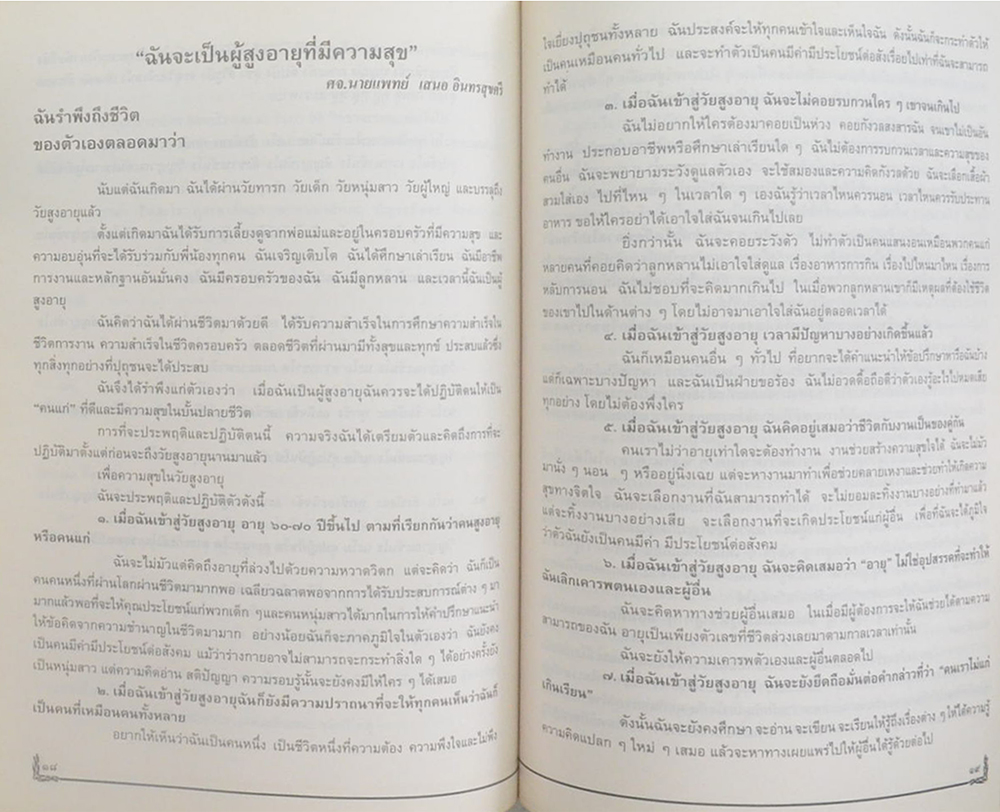 “ฉันจะเป็นผู้สูงอายุที่มีความสุข”
ศจ.นายแพทย์ เสนอ อินทรสุขศรี
ฉันรำพึงถึงชีวิต
ของตัวเองตลอดมาว่า
นับแต่ฉันเกิดมา ฉันได้ผ่านวัยทารก วัยเด็ก วัยหนุ่มสาว วัยผู้ใหญ่ และบรรลุถึง
วัยสูงอายุแล้ว
ตั้งแต่เกิดมาฉันได้รับการเลี้ยงดูจากพ่อแม่และอยู่ในครอบครัวที่มีความสุข และ
ความอบอุ่นที่จะได้รับร่วมกับพี่น้องทุกคน ฉันเจริญเติบโต ฉันได้ศึกษาเล่าเรียน ฉันมีอาชีพ
การงานและหลักฐานอันมั่นคง ฉันมีครอบครัวของฉัน ฉันมีลูกหลาน และเวลานี้ฉันเป็นผู้
สูงอายุ
ฉันคิดว่าฉันได้ผ่านชีวิตมาด้วยดี ได้รับความสำเร็จในการศึกษาความสำเร็จใน
ชีวิตการงาน ความสำเร็จในชีวิตครอบครัว ตลอดชีวิตที่ผ่านมามีทั้งสุขและทุกข์ ประสบแล้วซึ่ง
ทุกสิ่งทุกอย่างที่ปุถุชนจะได้ประสบ
ฉันจึงได้รำพึงแก่ตัวเองว่า เมื่อฉันเป็นผู้สูงอายุฉันควรจะได้ปฏิบัติตนให้เป็น
“คนแก่” ที่ดีและมีความสุขในบั้นปลายชีวิต
การที่จะประพฤติและปฏิบัติตนนี้ ความจริงฉันได้เตรียมตัวและคิดถึงการที่จะ
ปฏิบัติมาตั้งแต่ก่อนจะถึงวัยสูงอายุนานมาแล้ว
เพื่อความสุขในวัยสูงอายุ
ฉันจะประพฤติและปฏิบัติตัวดังนี้
๑. เมื่อฉันเข้าสู่วัยสูงอายุ อายุ ๖๐-๗๐ ปีขึ้นไป ตามที่เรียกกันว่าคนสูงอายุ
หรือคนแก่
ฉันจะไม่มัวแต่คิดถึงอายุที่ล่วงไปด้วยความหวาดวิตก แต่จะคิดว่า ฉันก็เป็น
คนคนหนึ่งที่ผ่านโลกผ่านชีวิตมามากพอ เฉลียวฉลาดพอจากการได้รับประสบการณ์ต่าง ๆ มา
มากแล้วพอที่จะให้คุณประโยชน์แก่พวกเด็ก ๆและคนหนุ่มสาวได้มากในการให้คำปรึกษาแนะนำ
ให้ข้อคิดจากความชำนาญในชีวิตมามาก อย่างน้อยฉันก็จะภาคภูมิใจในตัวเองว่า ฉันยังคง
เป็นคนมีค่ามีประโยชน์ต่อสังคม แม้ว่าร่างกายอาจไม่สามารถจะกระทำสิ่งใด ๆ ได้อย่างครั้งยัง
เป็นหนุ่มสาว แต่ความคิดอ่าน สติปัญญา ความรอบรู้นั้นจะยังคงมีให้ใคร ๆ ได้เสมอ
๒. เมื่อฉันเข้าสู่วัยสูงอายุฉันก็ยังมีความปรารถนาที่จะให้ทุกคนเห็นว่าฉันก็
เป็นคนที่เหมือนคนทั้งหลาย
อยากให้เห็นว่าฉันเป็นคนหนึ่ง เป็นชีวิตหนึ่งที่ความต้อง ความพึงใจและไม่พึง
๑๘
ใจเยี่ยงปุถุชนทั้งหลาย ฉันประสงค์จะให้ทุกคนเข้าใจและเห็นใจฉัน ดังนั้นฉันก็จะกระทำตัวให้
เป็นคนเหมือนคนทั่วไป และจะทำตัวเป็นคนมีค่ามีประโยชน์ต่อสังเรื่อยไปเท่าที่ฉันจะสามารถ
ทำได้
๓. เมื่อฉันเข้าสู่วัยสูงอายุ ฉันจะไม่คอยรบกวนใคร ๆ เขาจนเกินไป
ฉันไม่อยากให้ใครต้องมาคอยเป็นห่วง คอยกังวลสงสารฉัน จนเขาไม่เป็นอัน
ทำงาน ประกอบอาชีพหรือศึกษาเล่าเรียนใด ๆ ฉันไม่ต้องการรบกวนเวลาและความสุขของ
คนอื่น ฉันจะพยายามระวังดูแลตัวเอง จะใช้สมองและความคิดกังวลด้วย ฉันจะเลือกเสื้อผ้า
สวมใส่เอง ไปที่ไหน ๆ ในเวลาใด ๆ เองฉันรู้ว่าเวลาไหนควรนอน เวลาไหนควรรับประทาน
อาหาร ขอให้ใครอย่าได้เอาใจใส่ฉันจนเกินไปเลย
ยิ่งกว่านั้น ฉันจะคอยระวังตัว ไม่ทำตัวเป็นคนแสนงอนเหมือนพวกคนแก่
หลายคนที่คอยคิดว่าลูกหลานไม่เอาใจใส่ดูแล เรื่องอาหารการกิน เรื่องไปไหนมาไหน เรื่องการ
หลับการนอน ฉันไม่ชอบที่จะคิดมากเกินไป ในเมื่อพวกลูกหลานเขาก็มีเหตุผลที่ต้องใช้ชีวิต
ของเขาไปในด้านต่าง ๆ โดยไม่อาจมาเอาใจใส่ฉันอยู่ตลอดเวลาได้
๔. เมื่อฉันเข้าสู่วัยสูงอายุ เวลามีปัญหาบางอย่างเกิดขึ้นแล้ว
ฉันก็เหมือนคนอื่น ๆ ทั่วไป ที่อยากจะได้คำแนะนำให้ข้อปรึกษาหารือฉันบ้าง
แต่ก็เฉพาะบางปัญหา และฉันเป็นฝ่ายขอร้อง ฉันไม่อวดดื้อถือดีว่าตัวเองรู้อะไรไปหมดเสีย
ทุกอย่าง โดยไม่ต้องพึ่งใคร
๕. เมื่อฉันเข้าสู่วัยสูงอายุ ฉันคิดอยู่เสมอว่าชีวิตกับงานเป็นของคู่กัน
คนเราไม่ว่าอายุเท่าใดจะต้องทำงาน งานช่วยสร้างความสุขใจได้ ฉันจะไม่มัว
มานั่ง ๆ นอน ๆ หรืออยู่นิ่งเฉย แต่จะหางานมาทำเพื่อช่วยคลายเหงาและช่วยทำให้เกิดความ
สุขทางจิตใจ ฉันจะเลือกงานที่ฉันสามารถทำได้ จะไม่ยอมละทิ้งงานบางอย่างที่ทำมาแล้ว
แต่จะทิ้งงานบางอย่างเสีย จะเลือกงานที่จะเกิดประโยชน์แก่ผู้อื่น เพื่อที่ฉันจะได้ภูมิใจ
ว่าตัวฉันยังเป็นคนมีค่า มีประโยชน์ต่อสังคม
๖. เมื่อฉันเข้าสู่วัยสูงอายุ ฉันจะคิดเสมอว่า “อายุ” ไม่ใช่อุปสรรคที่จะทำให้
ฉันเลิกเคารพตนเองและผู้อื่น
ฉันจะคิดหาทางช่วยผู้อื่นเสมอ ในเมื่อมีผู้ต้องการจะให้ฉันช่วยได้ตามความ
สามารถของฉัน อายุเป็นเพียงตัวเลขที่ชีวิตล่วงเลยมาตามกาลเวลาเท่านั้น
ฉันจะยังให้ความเคารพตัวเองและผู้อื่นตลอดไป
๗. เมื่อฉันเข้าสู่วัยสูงอายุ ฉันจะยังยึดถือมั่นต่อคำกล่าวที่ว่า “คนเราไม่แก่
เกินเรียน”
ดังนั้นฉันจะยังคงศึกษา จะอ่าน จะเขียน จะเรียนให้รู้ถึงเรื่องต่าง ๆ ให้ได้ความรู้
ความคิดแปลก ๆ ใหม่ ๆ เสมอ แล้วจะหาทางเผยแพร่ไปให้ผู้อื่นได้รู้ด้วยต่อไป
๑๙